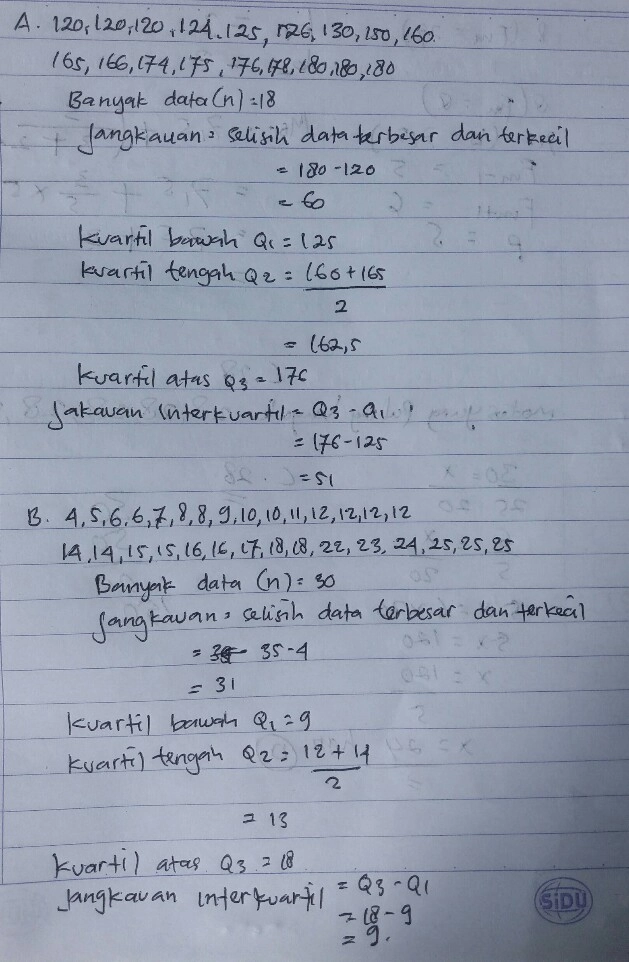 A. 120, 120, 120, 124, 125, 126, 130, 150, 160
165, 166, 174, 175, 176, 178, 180, 180, 180
Banyak data (n) = 18
Jangkauan = selisih data terbesar dan terkecil
= 180 - 120
= 60
Kuartil bawah Q1 = 125
Kuartil tengah Q2 = 160 + 165
2
= 162,5
Kuartil atas Q3 = 176
Jakauan Interkuartil = Q3 - Q1
= 176 - 125
= 51
B. 4, 5, 6, 6, 7, 8, 8, 9, 10, 10, 11, 12, 12, 12, 12
14, 14, 15, 15, 16, 16, 17, 18, 18, 22, 23, 24, 25, 25, 25
Banyak data (n) = 30
Jangkauan = selisih data terbesar dan terkecil
= 35 - 4
= 31
Kuartil bawah Q1 = 9
Kuartil tengah Q2 = 12 + 14
2
= 13
Kuartil atas Q3 = 18
Jangkauan interkuartil = Q3 - Q1
= 18 - 9
= 9.
SiDU